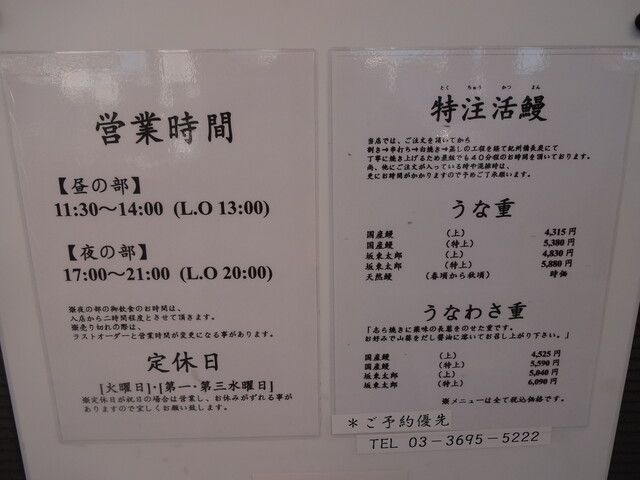 営業時間
【昼の部】
11:30～14:00 (L.O 13:00)
【夜の部】
17:00～21:00 (L.O 20:00)
※夜の部の御飲食のお時間は、
入店から二時間程度とさせて頂きます。
※売り切れの際は、
ラストオーダーと営業時間が変更になる事があります。
定休日
[火曜日]・[第一・第三水曜日]
※定休日が祝日の場合は営業し、お休みがずれる事が
ありますので宜しくお願い致します。
とく ちゅう かつ まん
特注活鰻
当店では、ご注文を頂いてから
剥き→串打ち→白焼き→蒸しの工程を経て紀州備長炭にて
丁寧に焼き上げるため最短でも４０分程のお時間を頂いております。
尚、他にご注文が入っている時や混雑時は、
更にお時間がかかりますので予めご了承願います。
うな重
国産鰻 （上） 4,315 円
国産鰻 （特上） 5,380 円
坂東太郎 （上） 4,830 円
坂東太郎 （特上） 5,880 円
天然鰻 （春頃から秋頃） 時価
うなわさ重
「志ら焼きに薬味の長葱をのせた重です。
お好みで山葵をだし醤油に溶いてお召し上がり下さい。」
国産鰻 （上） 4,525 円
国産鰻 （特上） 5,590 円
坂東太郎 （上） 5,040 円
坂東太郎 （特上） 6,090 円
※メニューは全て税込価格です。
＊ご予約優先
TEL 03－3695－5222